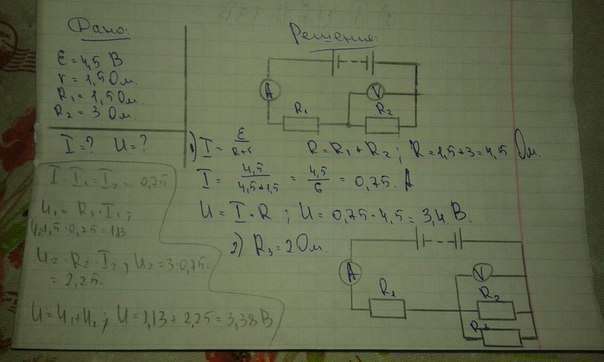 Дано:
E = 4,5 В
r = 1,5 Ом.
R₁ = 1,5 Ом.
R₂ = 3 Ом.
I = ? U = ?
I I₁ = I₂ = 0,75
U₁ = R₁ · I₁;
U₁=1,5·0,75=1,13
U₂ = R₂ · I₂; U₂ = 3·0,75.
= 2,25.
U = U₁+U₂; U = 1,13 + 2,25 = 3,38 В
Решение:
A
V
R₁
R₂
1) I = E/(R+r) R = R₁ + R₂; R = 1,5+3 = 4,5 Ом.
I = 4,5/(4,5+1,5) = 4,5/6 = 0,75. А
U = I · R; U = 0,75 · 4,5 = 3,4 В.
2) R₃ = 2 Ом.
A
V
R₁
R₂